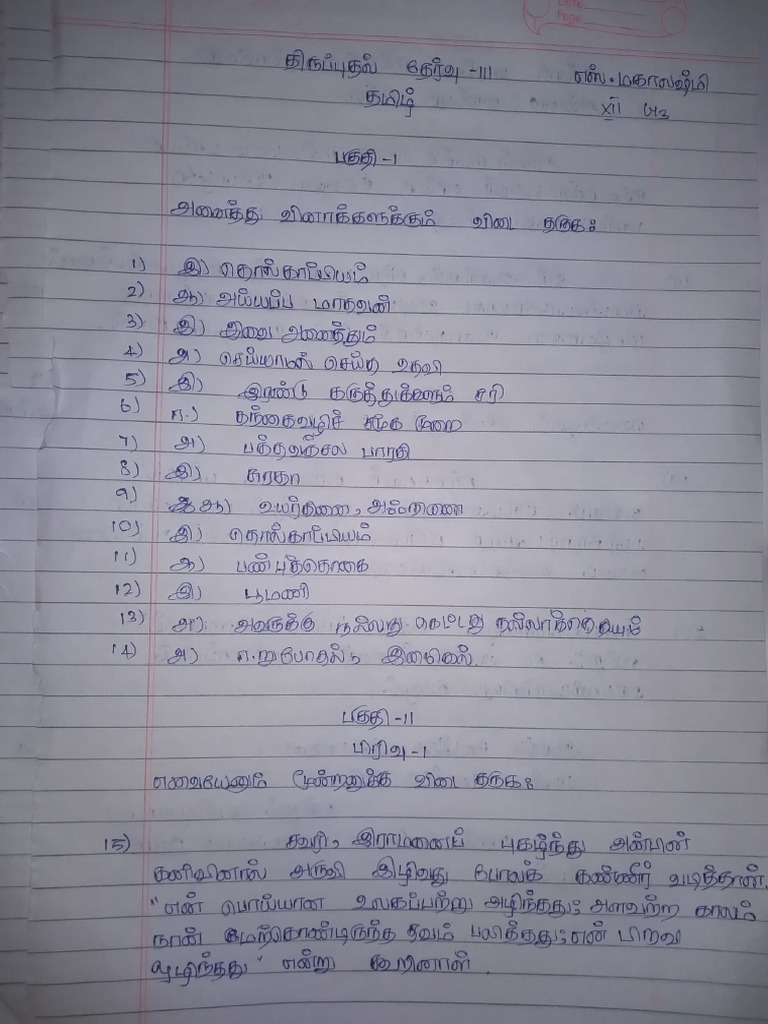 திருப்புதல் தேர்வு -III எஸ். மகாலஷ்மி
தமிழ் XII
பகுதி - I
அனைத்து வினாக்களுக்கும் விடை தருக:
1) இ) தொல்காப்பியம்
2) ஆ) அய்யப்ப மாதவன்
3) இ) இவை அனைத்தும்
4) அ) செய்யாமல் செய்த உதவி
5) இ) இரண்டு கருத்துகளும் சரி
6) ஈ) தந்தைவழிச் சமூக முறை
7) அ) பக்தவத்சல பாரதி
8) இ) சுரதா
9) ஆ) உயர்திணை, அஃறிணை
10) இ) தொல்காப்பியம்
11) ஆ) பண்புத்தொகை
12) இ) பூமணி
13) அ) அவருக்கு நல்லது கெட்டது
14) அ) ஏறுபோதல்,
பகுதி - II
பிரிவு - I
எவையேனும் மூன்றனுக்கு விடை தருக:
15) சவரி, இராமனைப் புகழ்ந்து அன்பின்
கனிவினால் அருவி இழிவது போலக் கண்ணீர் வடித்தாள்.
"என் பொய்யான உலகப்பற்று அழிந்தது; அளவற்ற காலம்
நான் மேற்கொண்டிருந்த தவம் பலித்தது; என் பிறவி
ஒழிந்தது" என்று கூறினாள்.